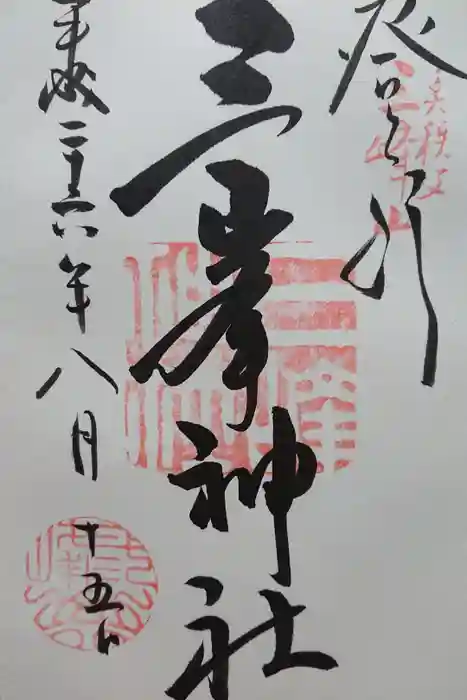 登拝
奥秩父
三峰山
三峯神社
平成二十六年八月
十五日